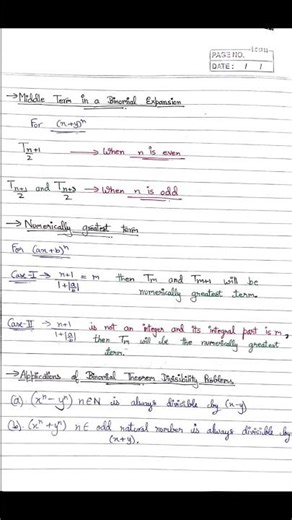 ICON
PAGE NO.
DATE: / /
→ Middle Term in a Binomial Expansion
For (x+y)ⁿ
T n/2 +1 → When n is even
T (n+1)/2 and T (n+3)/2 → When n is odd
→ Numerically greatest term
For (ax+b)ⁿ
Case-I → (n+1)/(1+|a/b|) = m then Tm and Tm+1 will be
numerically greatest term.
Case-II → (n+1)/(1+|a/b|) is not an integer and its integral part is m,
then Tm will be the numerically greatest
term.
→ Applications of Binomial Theorem Divisibility Problems
(a) (xⁿ-yⁿ) n∈N is always divisible by (x-y)
(b) (xⁿ+yⁿ) n∈ odd natural number is always divisible by
(x+y).